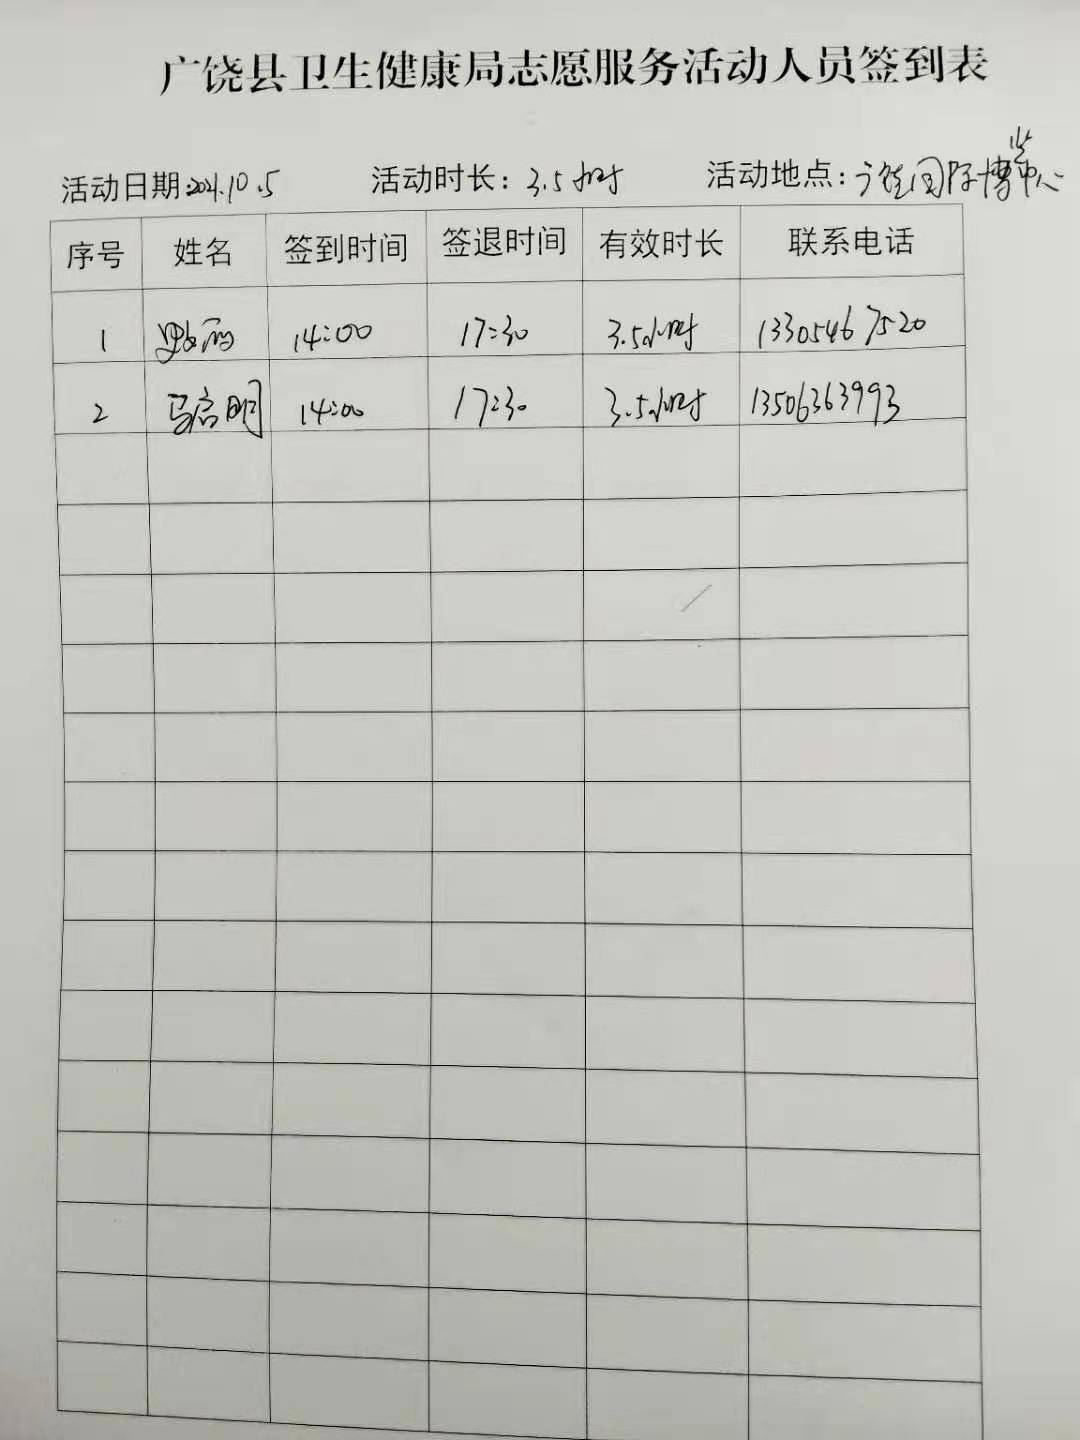 广饶县卫生健康局志愿服务活动人员签到表
活动日期:2021.10.5 活动时长: 3.5小时 活动地点:广饶国际博览中心
序号 姓名 签到时间 签退时间 有效时长 联系电话
1 14:00 17:30 3.5小时 13305467520
2 马启明 14:00 17:30 3.5小时 13506363993